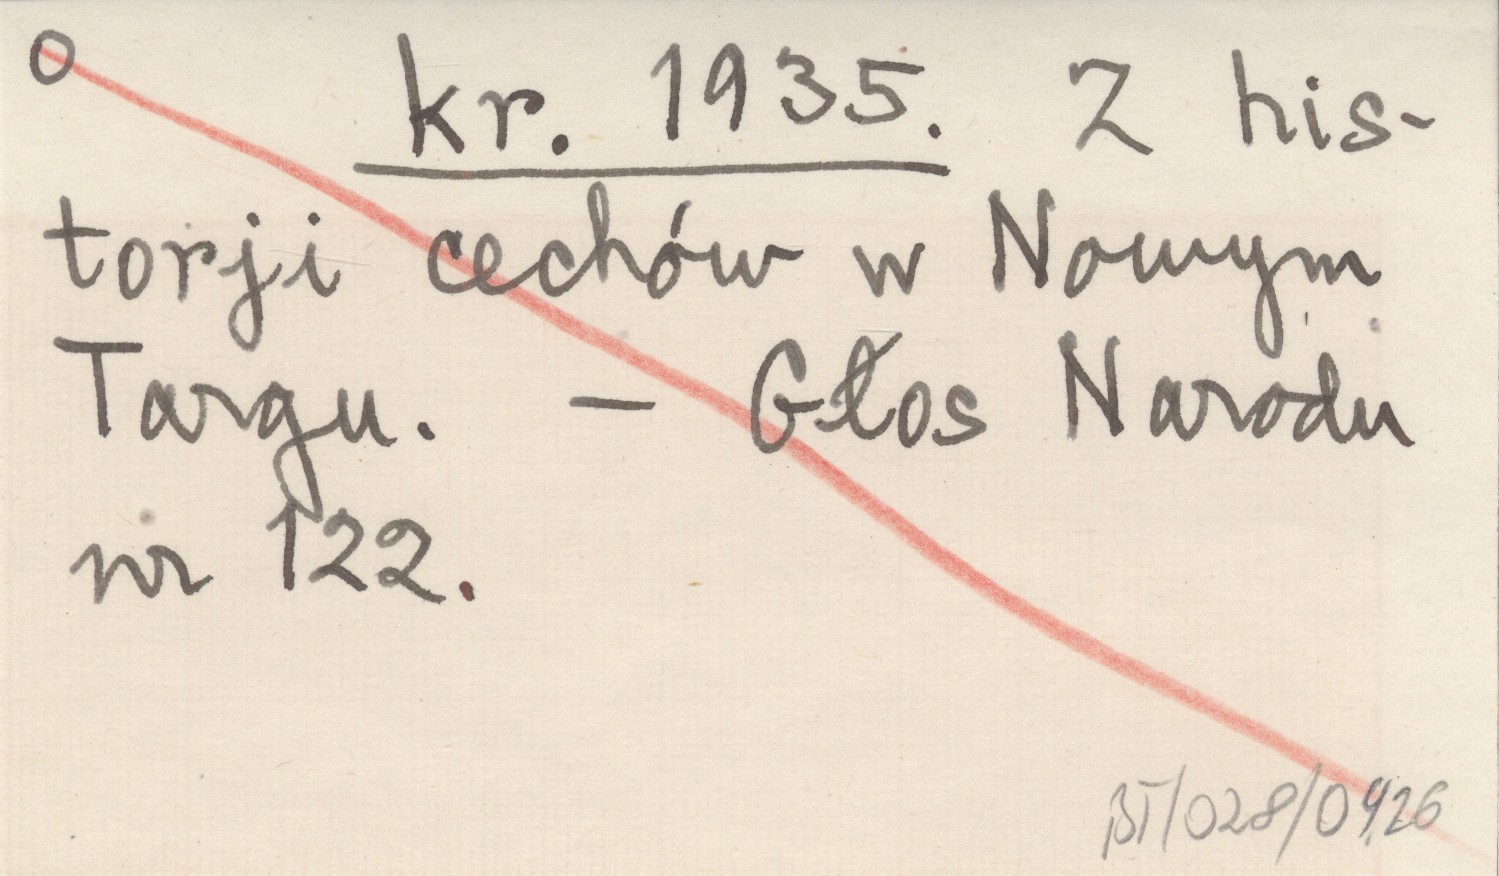 O kr. 1935. Z his-
torji cechów w Nowym
Targu. — Głos Narodu
nr 122.
BT/028/0426